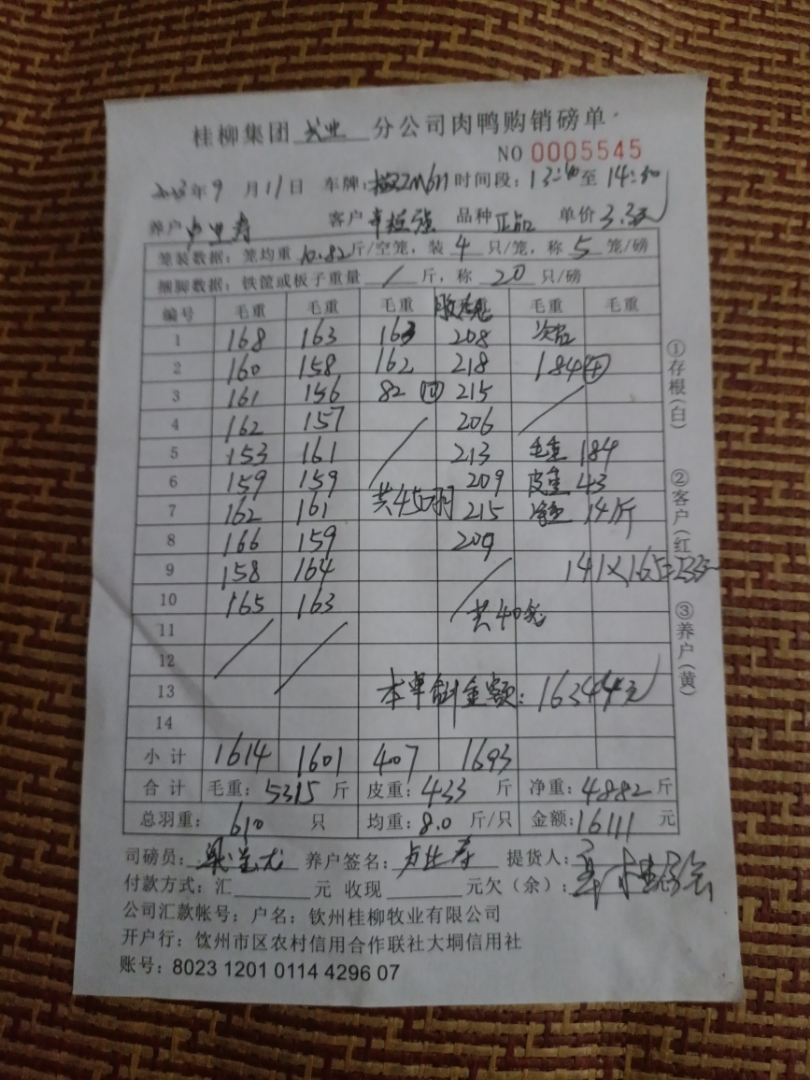 桂柳集团 分公司肉鸭购销磅单
NO 0005545
2023年9月11日 车牌: 时间段:13: 至14:
养户 卢世寿 客户 卓桂强 品种 正品 单价 3.3元
笼装数据:笼均重 10.82 斤/空笼,装 4 只/笼,称 5 笼/磅
捆脚数据:铁筐或板子重量 / 斤,称 20 只/磅
编号 毛重 毛重 毛重 毛重 毛重
1 168 163 163 208 次品
2 160 158 162 218 184 ④
3 161 156 82 ⑩ 215
4 162 157 206
5 153 161 213 毛重 184
6 159 159 209 皮重 43
7 162 161 共450羽 215 净重 141斤
8 166 159 209
9 158 164 141×1.65=233元
10 165 163 共40笼
11
12
13 本单总金额:16344元
14
小计 1614 1601 407 1693
合计 毛重:5315 斤 皮重:433 斤 净重:4882 斤
总羽重: 610 只 均重:8.0 斤/只 金额:16111 元
司磅员: 养户签名:卢世寿 提货人:
付款方式:汇 元 收现 元欠(余):
公司汇款帐号:户名:钦州桂柳牧业有限公司
开户行:饮州市区农村信用合作联社大垌信用社
账号:8023 1201 0114 4296 07
①存根(白)
②客户(红)
③养户(黄)